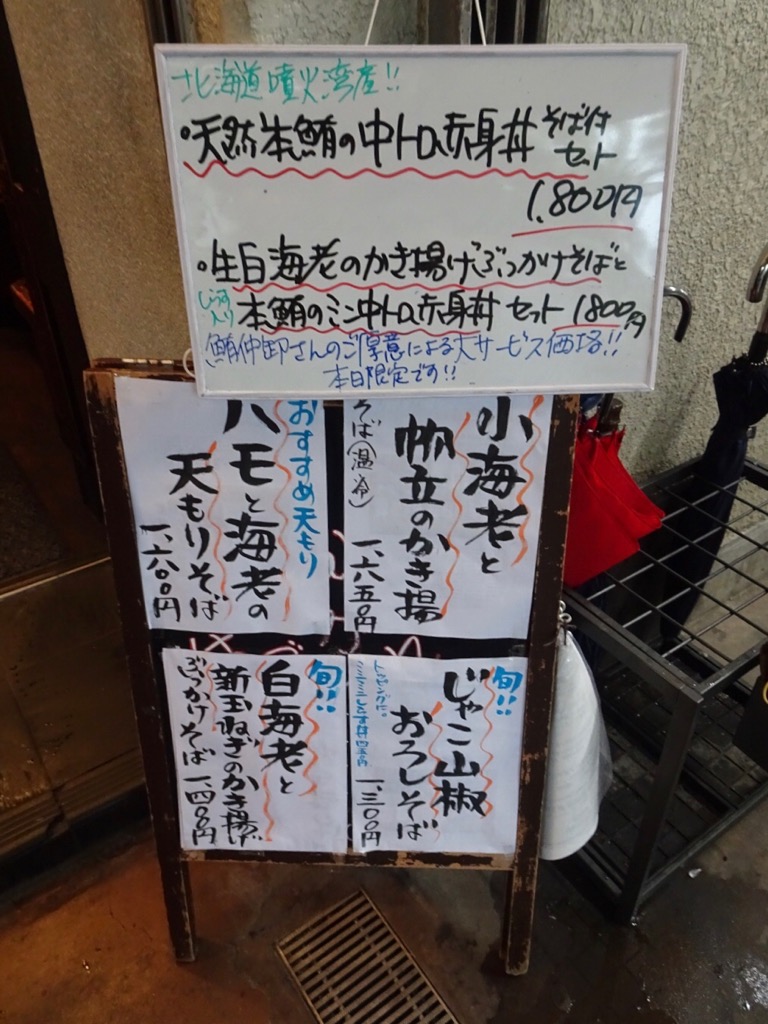 北海道噴火湾産!!
・天然本鮪の中トロ、赤身丼 そば付
セット
1,800円
・生白海老のかき揚げぶっかけそばと
本鮪のミニ中トロ、赤身丼 セット 1800円
鮪仲卸さんのご厚意による大サービス価格!!
本日限定です!!
おすすめ天もり
ハモと海老の
天もりそば
一、六〇〇円
小海老と
帆立のかき揚
そば(温冷)
一、六五〇円
旬!!
白海老と
新玉ねぎのかき揚げ
ぶっかけそば 一、四〇〇円
旬!!
じゃこ山椒
おろしそば
一、三〇〇円